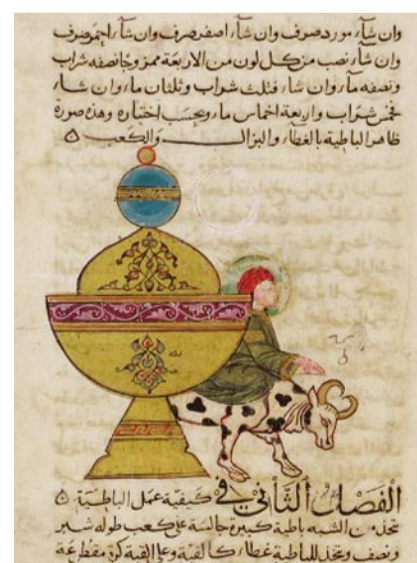 وان شآء مورد صرف وان شآء اصفر صرف وان شآء احمر صرف
وان شآء نصب من كل لون من الاربعة ممزوجا نصفه شراب
ونصفه مآء وان شآء فثلث شراب وثلثان مآء وان شآء
فخمس شراب واربعة اخماس مآء وبحسب اختياره وهذه صورة
ظاهر الباطية بالغطآء والبزال والكعب
الفصل الثاني في كيفية عمل الباطية
تتخذ من الشبه باطية كبيرة جالسة على كعب طوله شبر
ونصف وتتخذ للباطية غطآء كالقبة وعلى القبة كرة مفطرعة